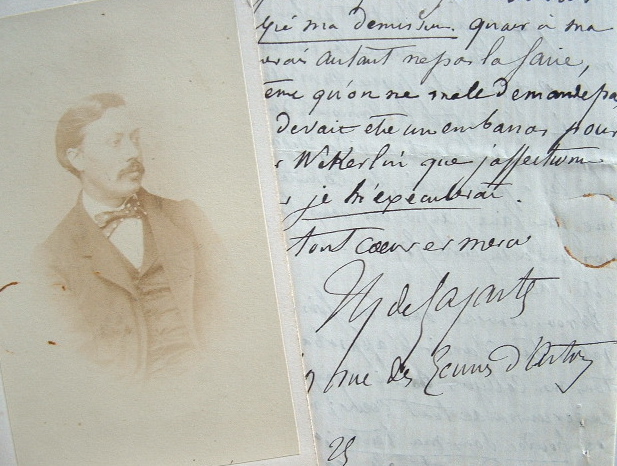 ma demission. quant à ma
autant ne pas la faire,
qu'on ne me le demande pas
devait être un embarras pour
Wekerlin que j'affectionne
je m'executerai.
tout coeur et merci
de Lajarte
rue des Ecuries d'Artois